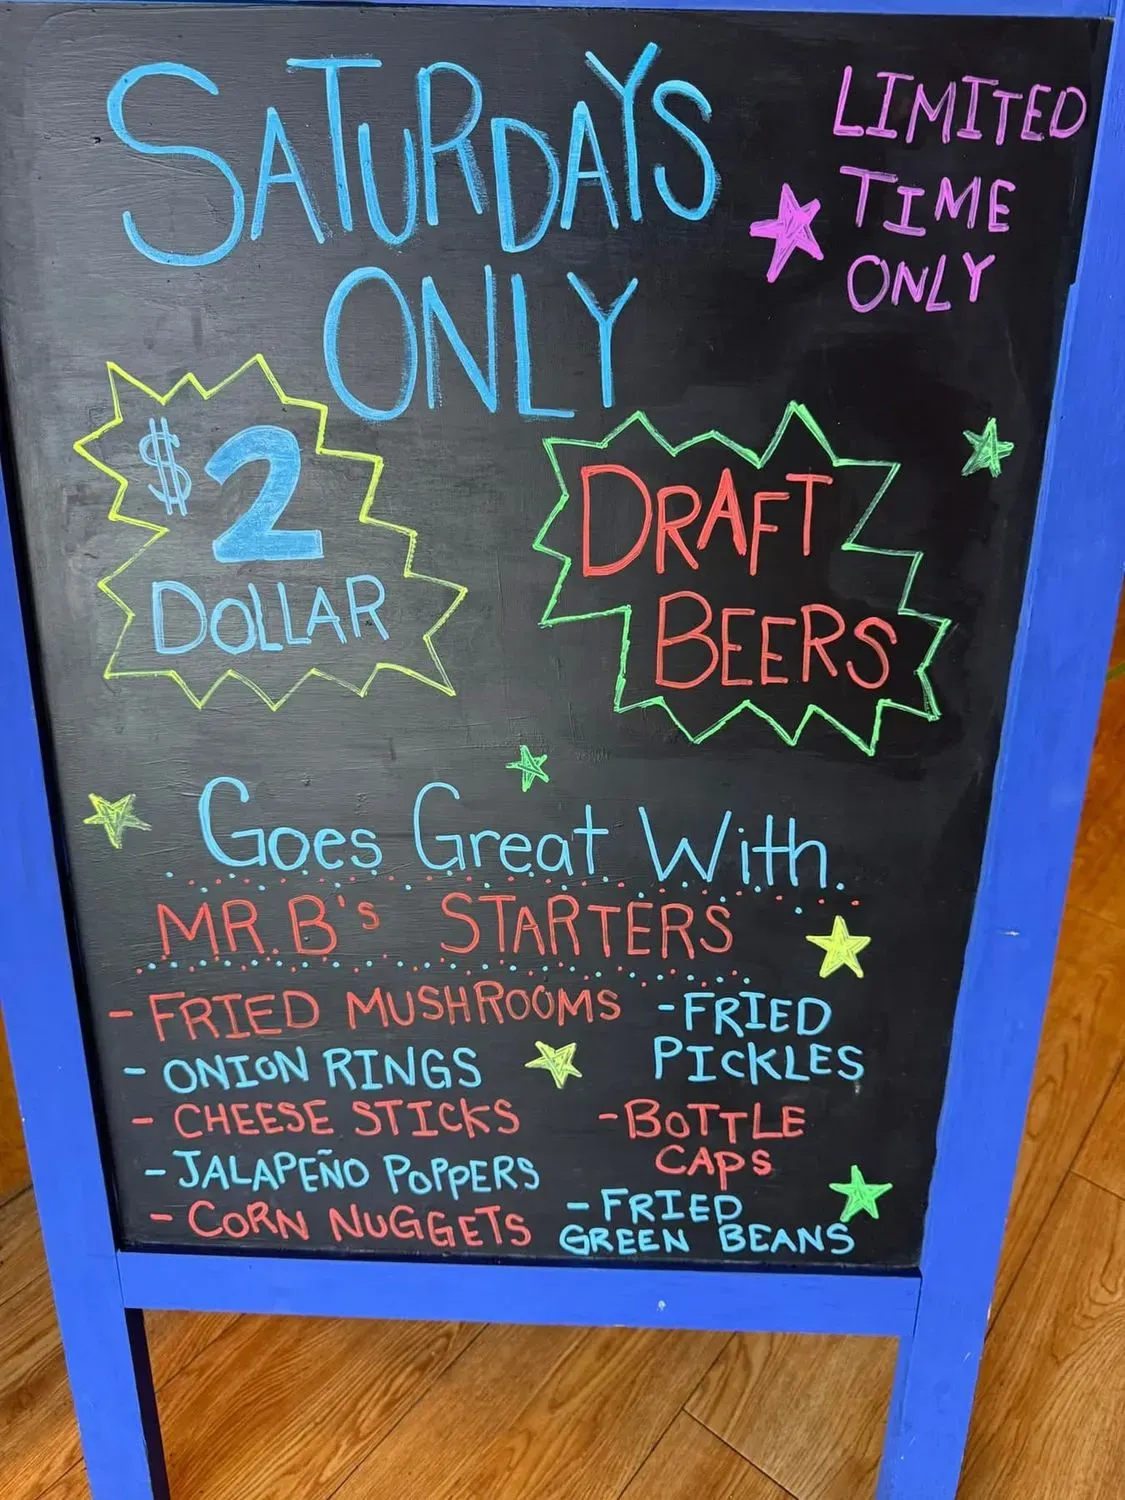 SATURDAYS
ONLY
LIMITED
TIME
ONLY
$2
DOLLAR
DRAFT
BEERS
Goes Great With
MR. B's STARTERS
- FRIED MUSHROOMS
- ONION RINGS
- CHEESE STICKS
- JALAPEÑO POPPERS
- CORN NUGGETS
- FRIED
PICKLES
- BOTTLE
CAPS
- FRIED
GREEN BEANS